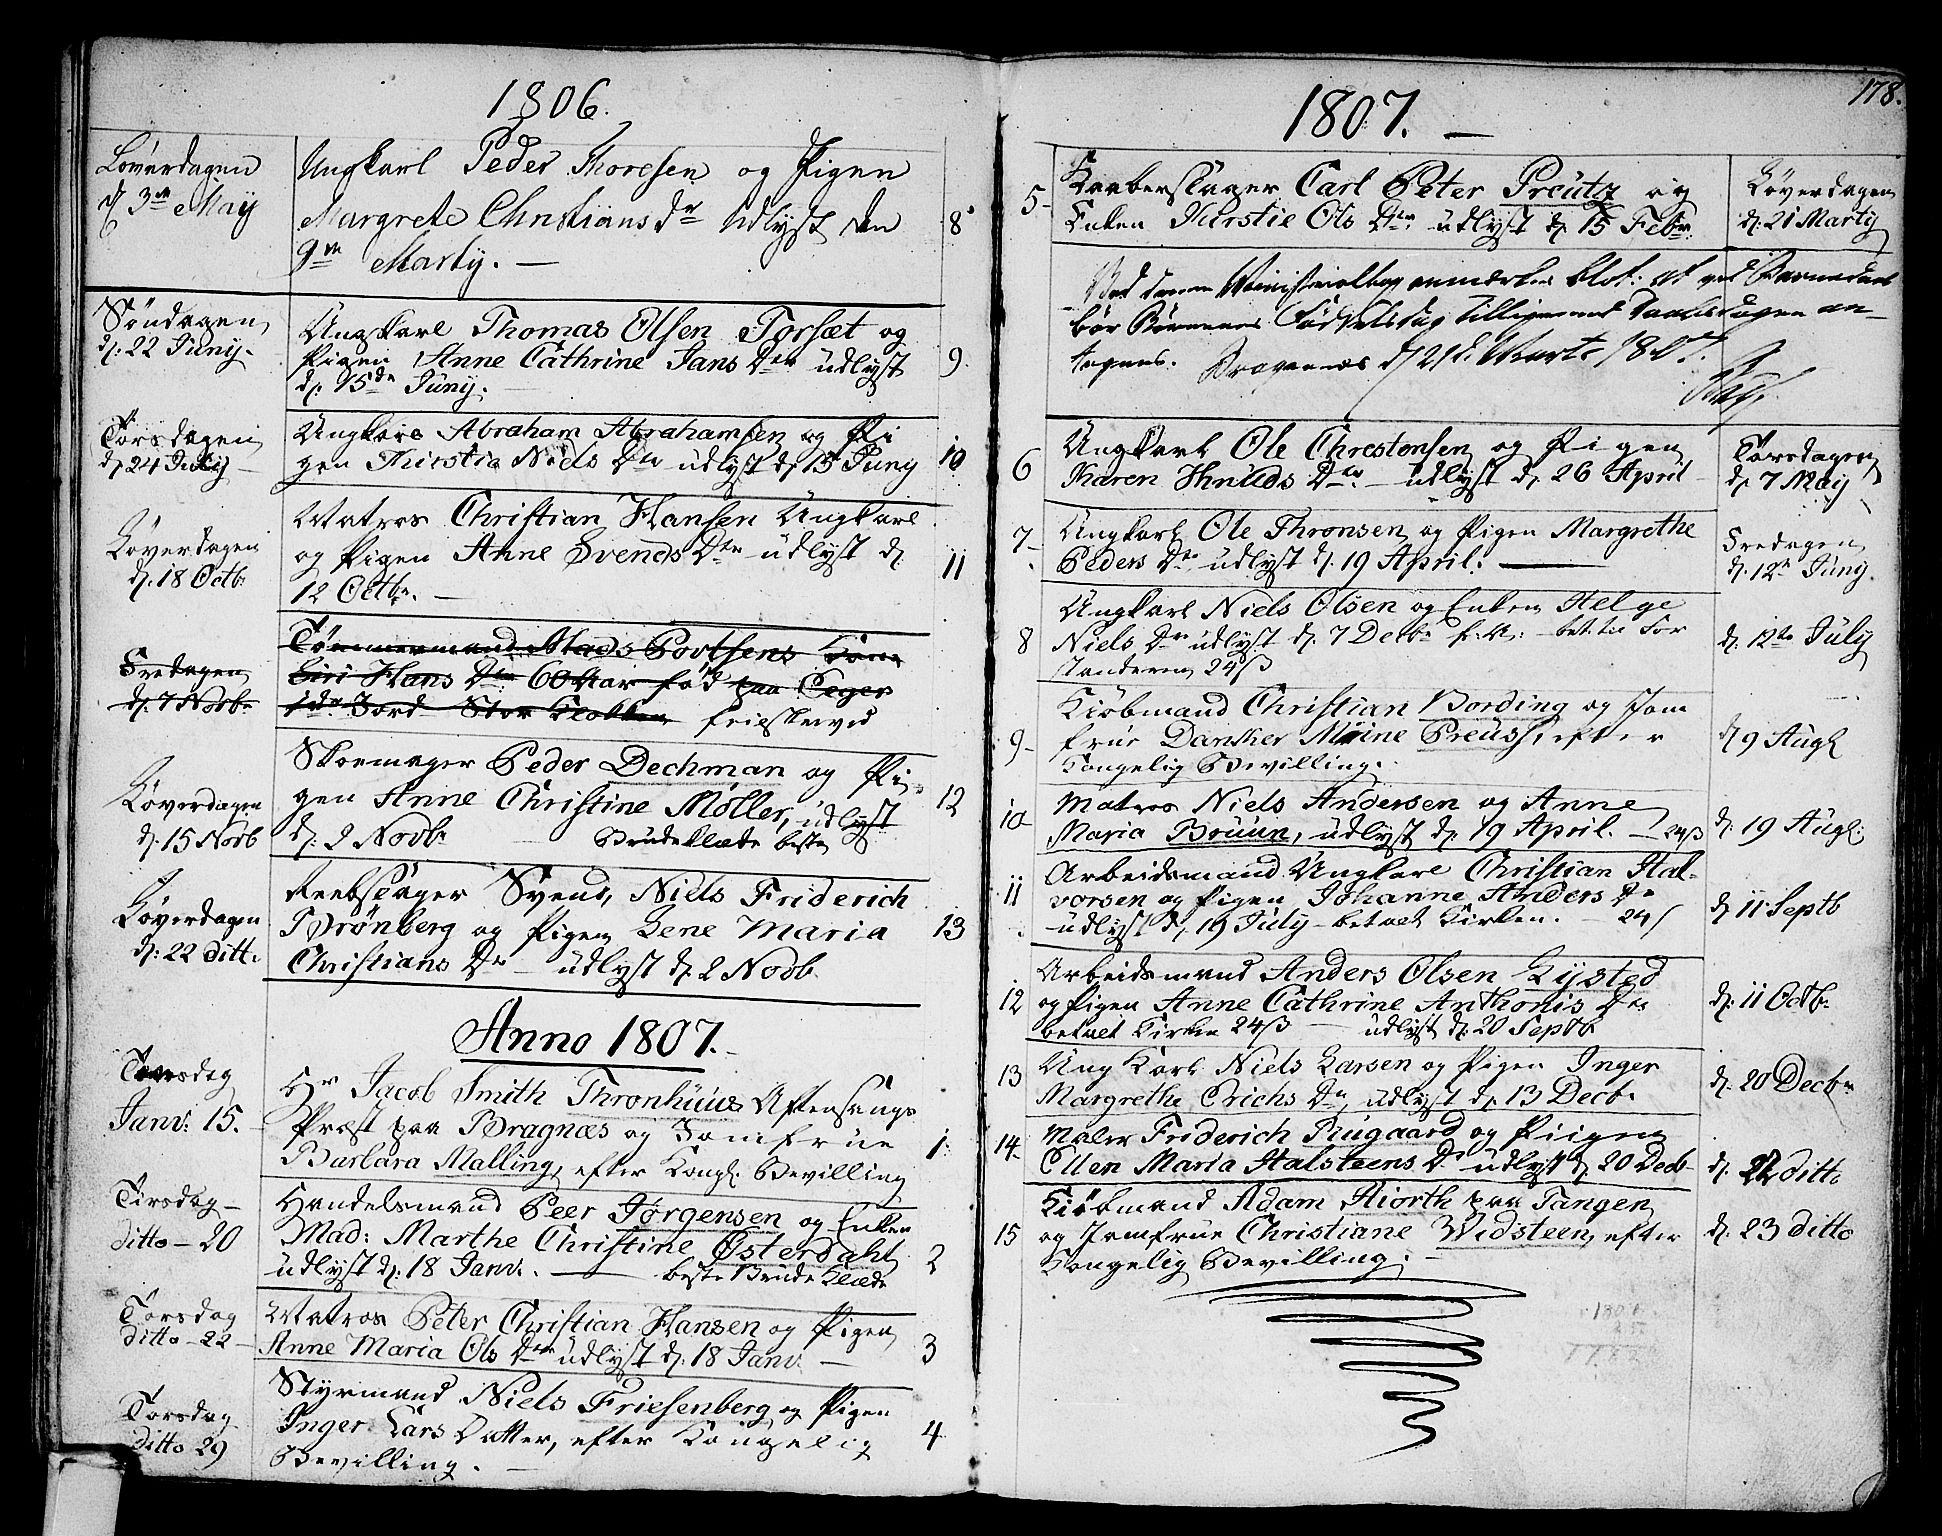 1806.
Løverdagen
d 3de May
Ungkarl Peder Thoresen og Pigen
Margrete Christians dr Udlyst den
9de Martij. —
8
Søndagen
d: 22 Juny.
Ungkarl Thomas Olsen Torsæt og
Pigen Anne Cathrine Jans Dtr udlyst
d: 15de Juny.
9.
Torsdagen
d, 24 July
Ungkarl Abraham Abrahamsen og Pi
gen Kirstia Niels Dtr udlyst d, 15 Juny
10
Løverdagen
d: 18 Octb:
Matros Christian Hansen Ungkarl
og Pigen Anne Svends Dtr udlyst d,
12 Octbr. —
11
Fredagen
d: 7 Novbr
Tømmermand Mads Povlsens Kone
Siri Hans Dtr 60 Aar fød paa Eeger
Jord Stor Klokken
Løverdagen
d: 15 Novb
Skoemager Peder Dechman og Pi-
gen Anne Christine Møller, udlyst
d, 2 Novbr Brudeklæde beste
12
Løverdagen
d: 22 ditto
Reebslager Svend, Niels Friderich
Brønberg og Pigen Lene Maria
Christians Dr — udlyst d, 2 Novb.
13
Anno 1807.
Torsdag
Janv: 15.
Hr Jacob Smith Thronhuus Aftensangs
Præst paa Bragnæs og Jomfrue
Barbara Malling, efter Kongl. Bevilling
1.
Tirsdag —
ditto — 20
Handelsmand Peer Jørgensen og Enken
Mad: Marthe Christine Østerdahl
udlyst d: 18 Janv. — beste Brude Klæde
2
Torsdag
ditto — 22 —
Matros Peter Christian Hansen og Pigen
Anne Maria Ols Dtr udlyst d: 18 Janv. —
3
Torsdag
ditto 29
Styrmand Niels Friesenberg og Pigen
Inger Lars Datter, efter Kongelig
Bevilling. —
4
178.
1807. —
5-
Kaaberslager Carl Peter Preutz og
Enken Kirstie Ols Dtr: udlyst d, 15 Febr.
Løverdagen
d: 21 Martij
Ved denne Ministerialbog anmerkes blot: at ved Barnedaab
bør Børnenes Fødselsdag tilligemed Daabsdagen an-
tegnes. Bragernæs d, 21de Marti 1807.
6
Ungkarl Ole Chrestensen og Pigen
Karen Knuds Dtr. — udlyst d, 26 April
Torsdagen
d, 7 May
7-
Ungkarl Ole Thronsen og Pigen Margrethe
Peders Dtr udlyst d, 19 April. —
Fredagen
d, 12te Juny.
8
Ungkarl Niels Olsen og Enken Helge
Niels Dtr udlyst d, 7 Decbr f: A: betalte For
standeren 24 ß
d, 12te July
9-
Kiøbmand Christian Bording og Jom
frue Danker Maine Preuss, efter
Kongelig Bevilling.
d, 9 Augl
10-
Matros Niels Andersen og Anne
Maria Bruun, udlyst d, 19 April. — 24ß
d: 19 Augl.
11
Arbeidsmand Ungkarl Christian Hal-
vorsen og Pigen Johanne Anders Dr
udlyst d, 19 July — betalt Kirken. — 24 ß
d, 11 Septb
12
Arbeidsmand Anders Olsen Lysted
og Pigen Anne Cathrine Anthonis Dtr
betalt Kirken 24ß — udlyst d: 20 Septbr
d: 11 Octbr
13
Ung Karl Niels Larsen og Pigen Inger
Margrethe Erichs Dtr, udlyst d, 13 Decbr
d, 20 Decbr
14-
Maler Friderich Ruugaard og Piigen
Ellen Maria Halsteens Dr udlyst d, 20 Decb
d, 22 ditto
15
Kiøbmand Adam Hiorth paa Tangen
og Jomfrue Christiane Widsteen, efter
Kongelig Bevilling. —
d, 23 ditto